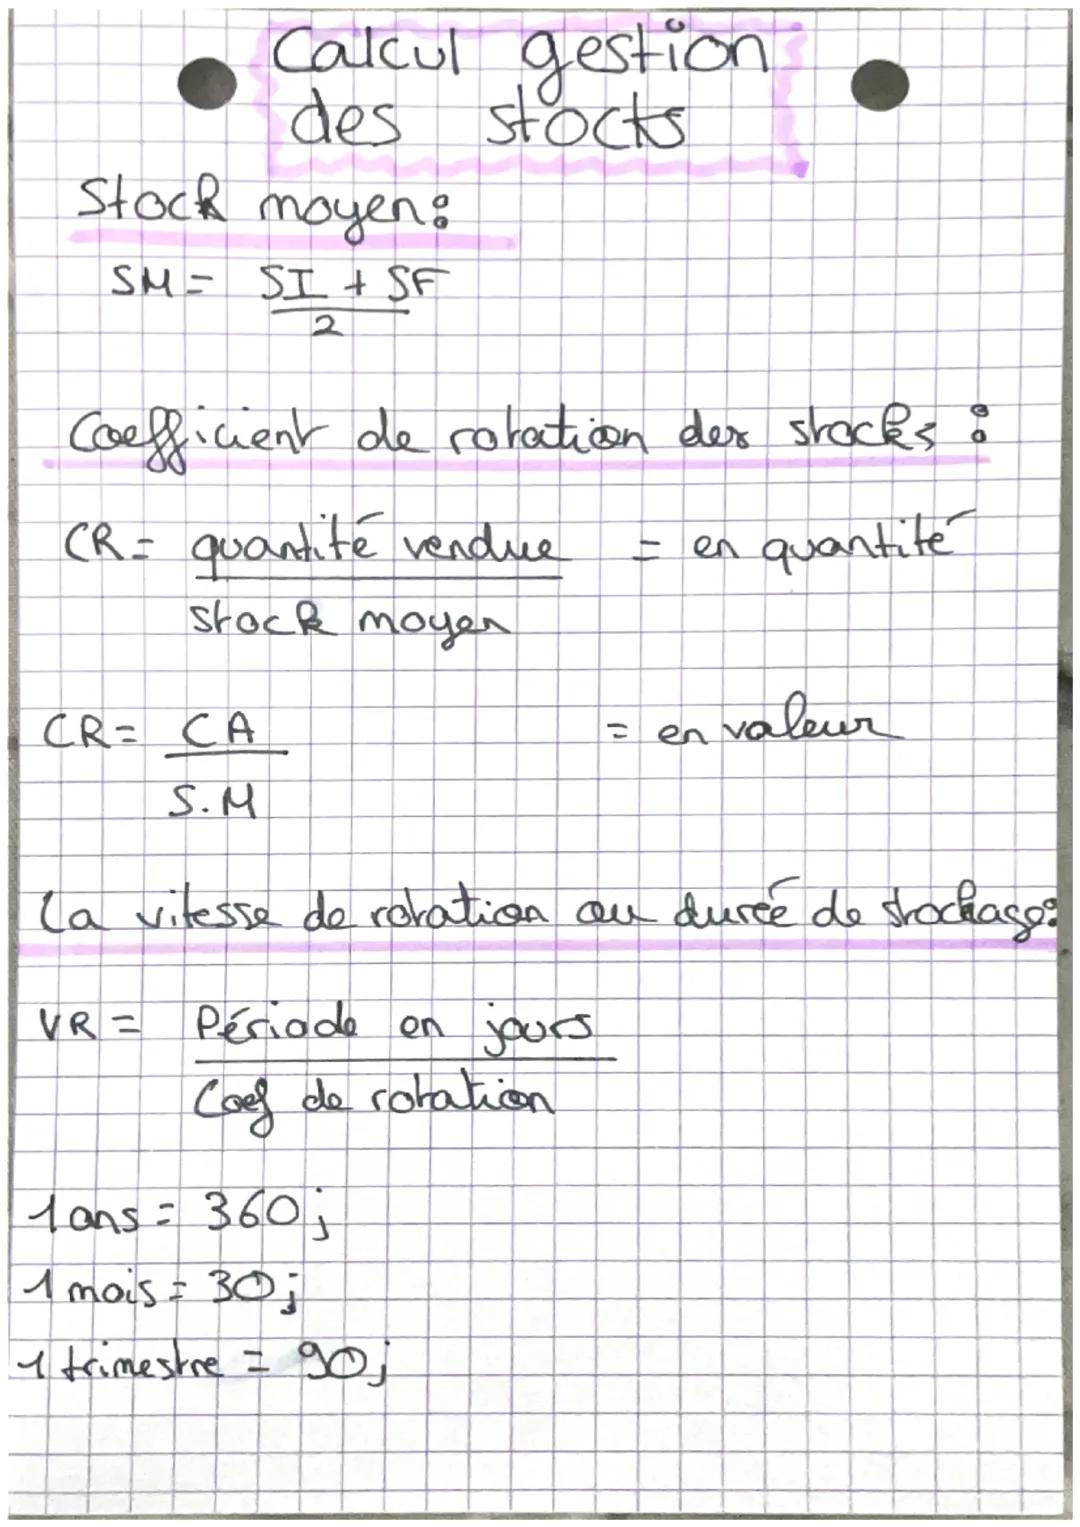 Calcul gestion
des stocks
Stock moyen:
SM = SI + SF
2
Coefficient de rotation des stocks :
CR = quantité vendue = en quantité
stock moyen
CR = CA = en valeur
S.M
La vitesse de rotation ou durée de stockage:
VR = Période en jours
Coef de rotation
1 ans = 360 j
1 mois = 30 j
1 trimestre = 90 j